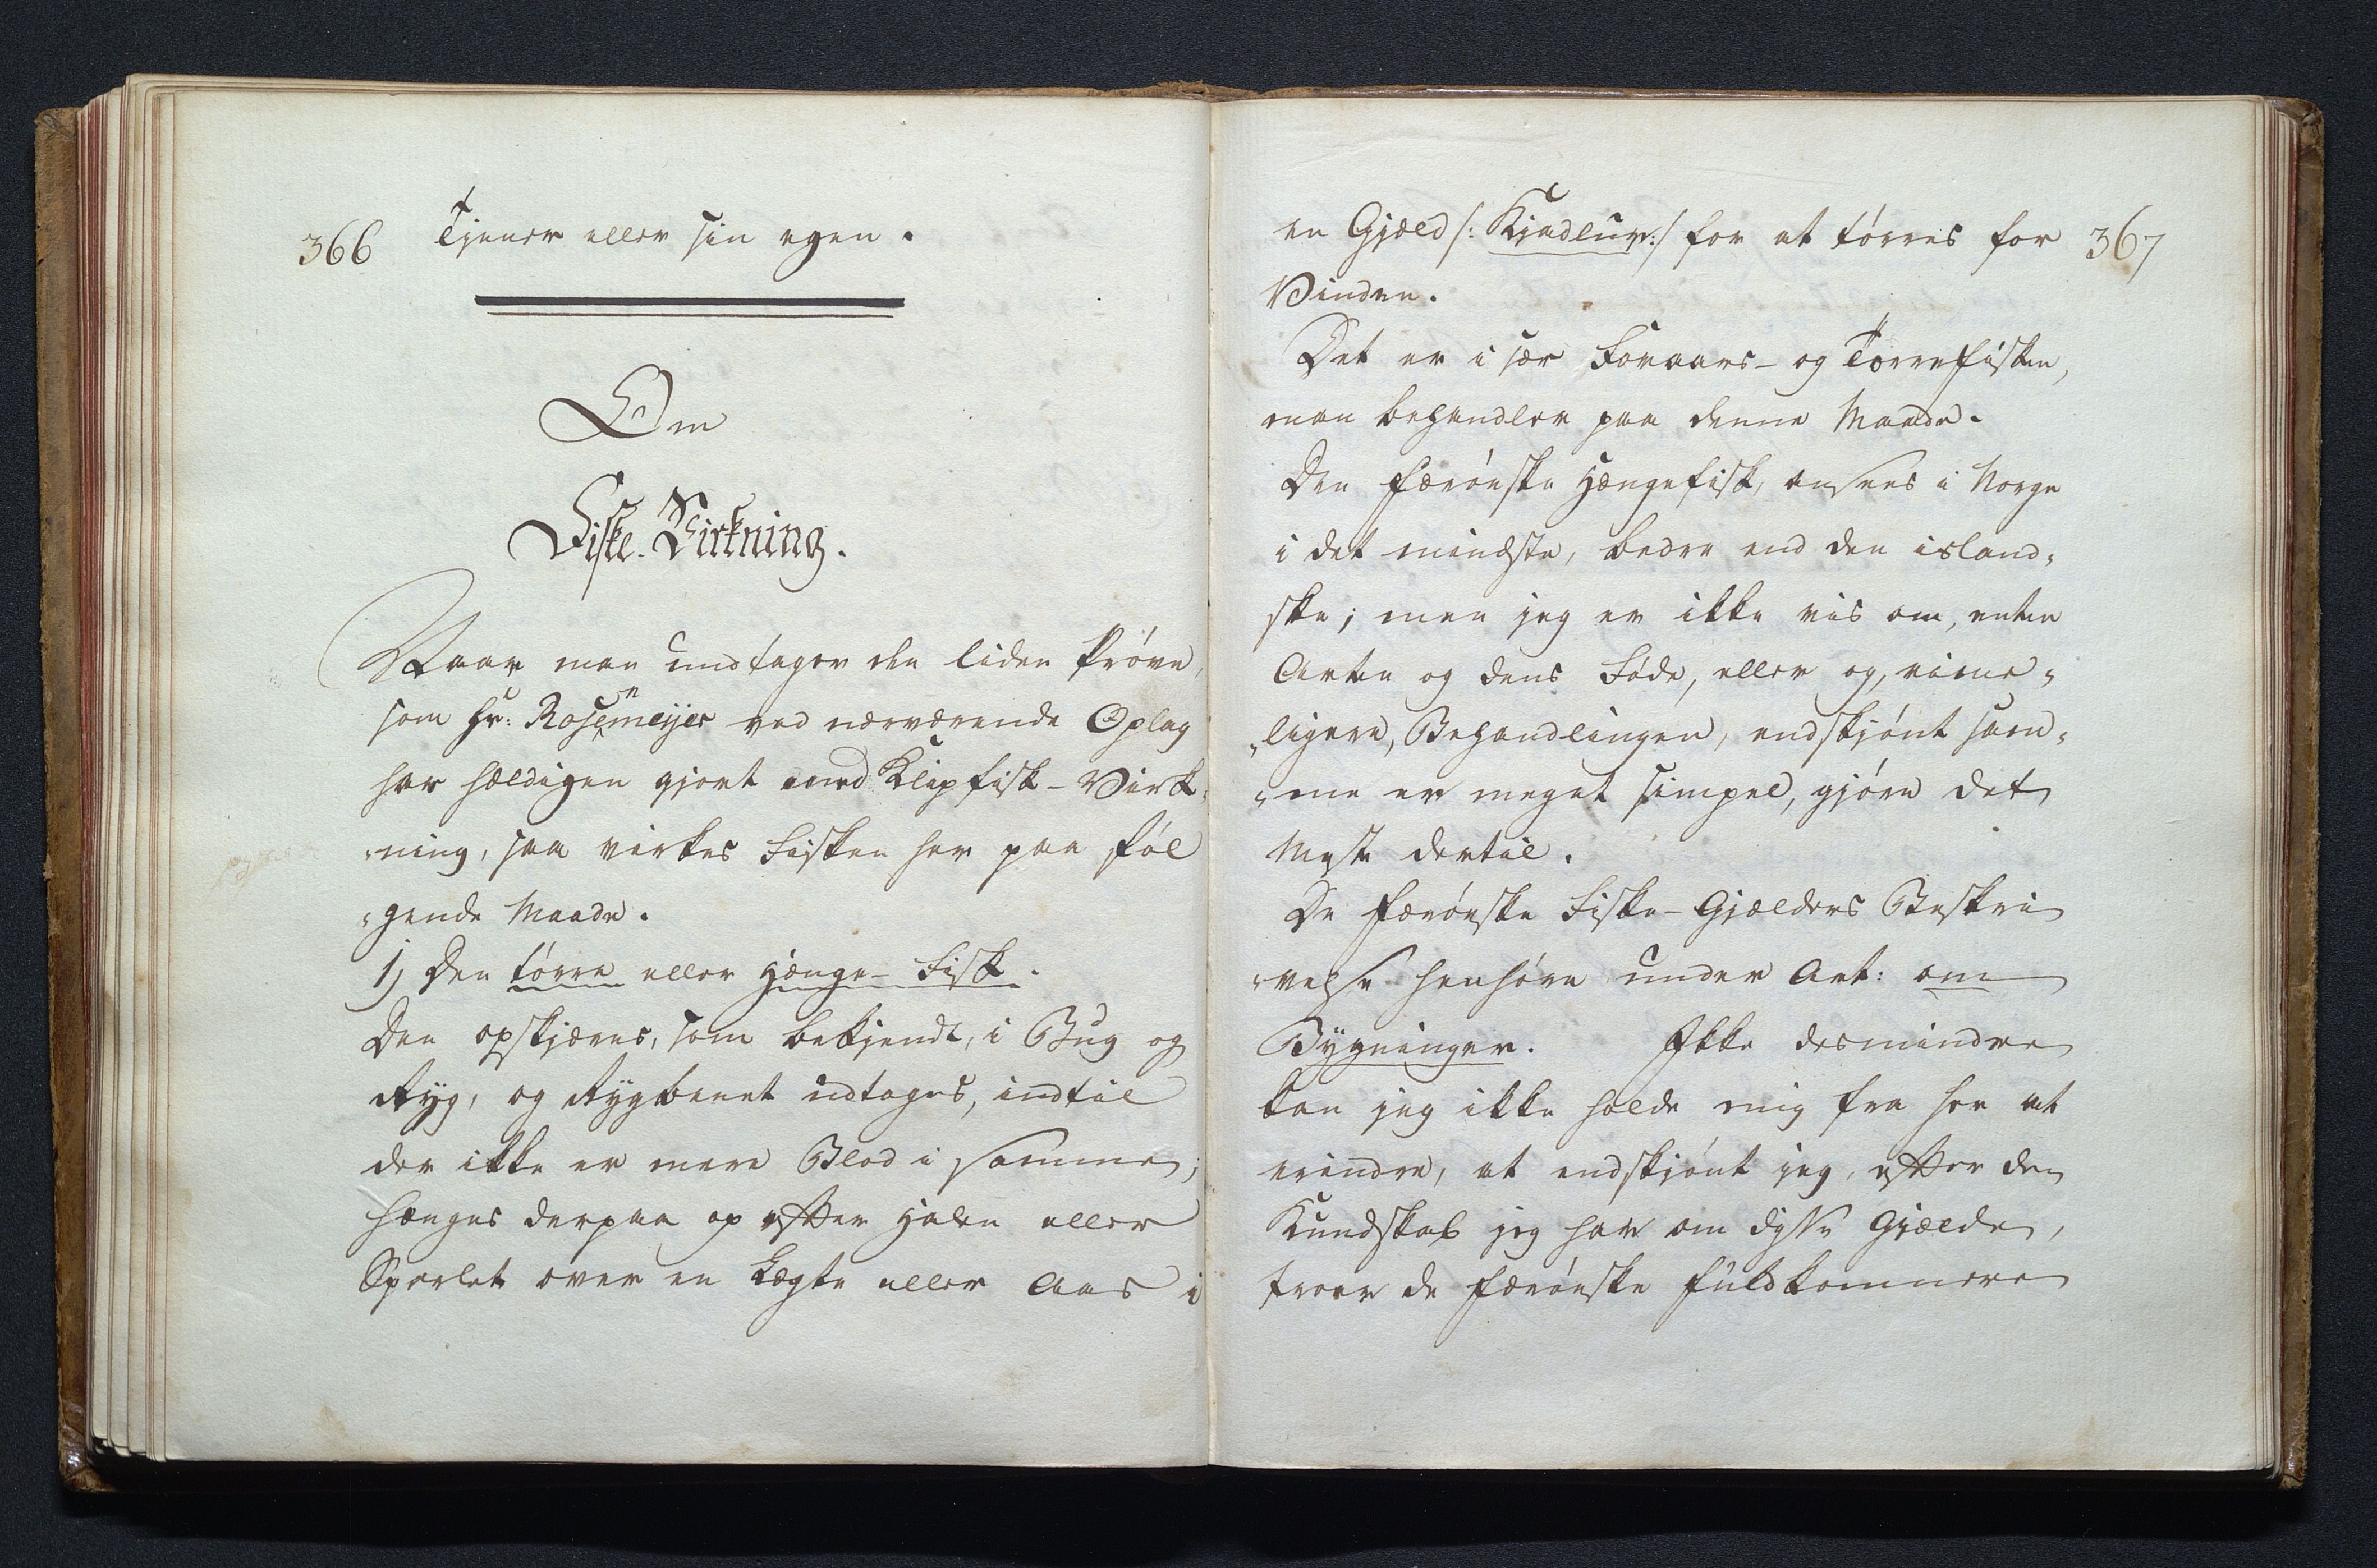 366
Tjener eller sin egen.
Om
Fiske-Virkning.
Naar man undtager den liden Prøve,
som Hr: Rosenmeyer ved nærværende Oplag
har hældigen gjort med Klipfisk-Virk-
-ning, saa virkes Fisken her paa føl
-gende Maade.
1) Den tørre eller Hænge-Fisk.
Den opskjæres, som bekjendt, i Bug og
Ryg, og Rygbenet udtages, indtil
der ikke er mere Blod i samme;
hænges derpaa op efter Halen eller
Sporlet over en Lægte eller Aas i
367
en Gjæld /: Kjadlur :/ for at tørres for
Vinden.
Det er i sær Foraars- og Tørrefisken,
man behandler paa denne Maade.
Den færøeske Hængefisk, ansees i Norge
i det mindste, bedre end den island-
ske; men jeg er ikke vis om, enten
Arten og dens Føde, eller og, rime-
-ligere, Behandlingen, endskjønt sam-
-me er meget simpel, gjøre det
Meste dertil.
De færøeske Fiske-Gjælders Beskri
-velse henhøre under Art: om
Bygninger. Ikke desmindre
kan jeg ikke holde mig fra her at
erindre, at endskjønt jeg, efter den
Kundskab jeg har om disse Gjælde,
troer de færøeske fuldkomnere